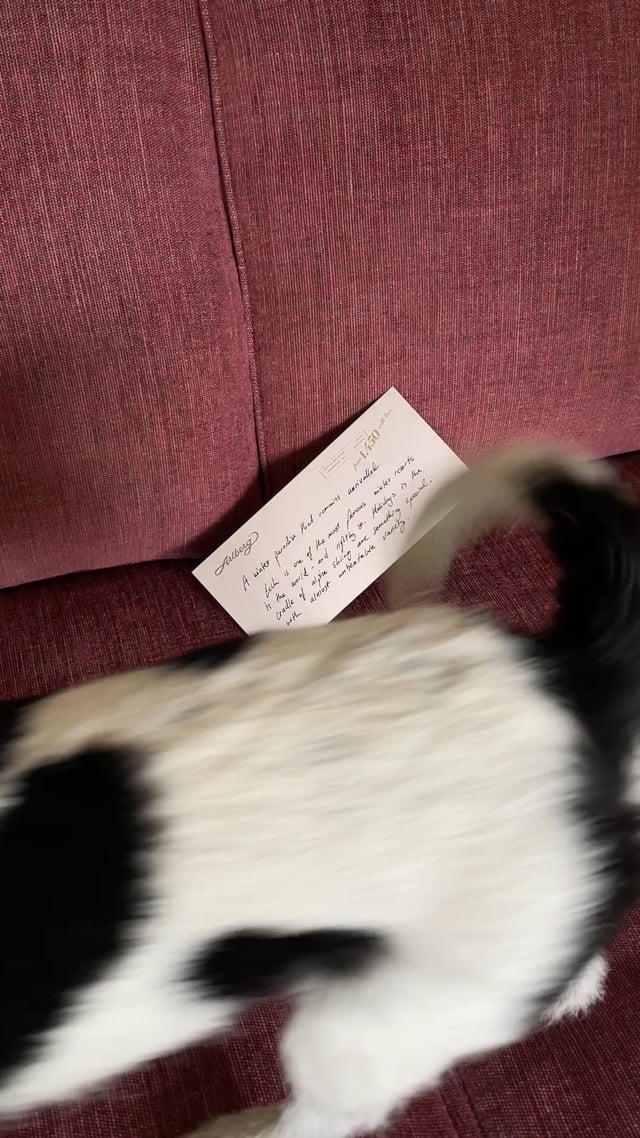 Arlberg
from 1.450 with love
A winter paradise that remains unrivalled
Lech is one of the most famous winter resorts
in the world - and rightly so. Holidays in the
cradle of alpine skiing are something special,
with almost unbeatable variety.